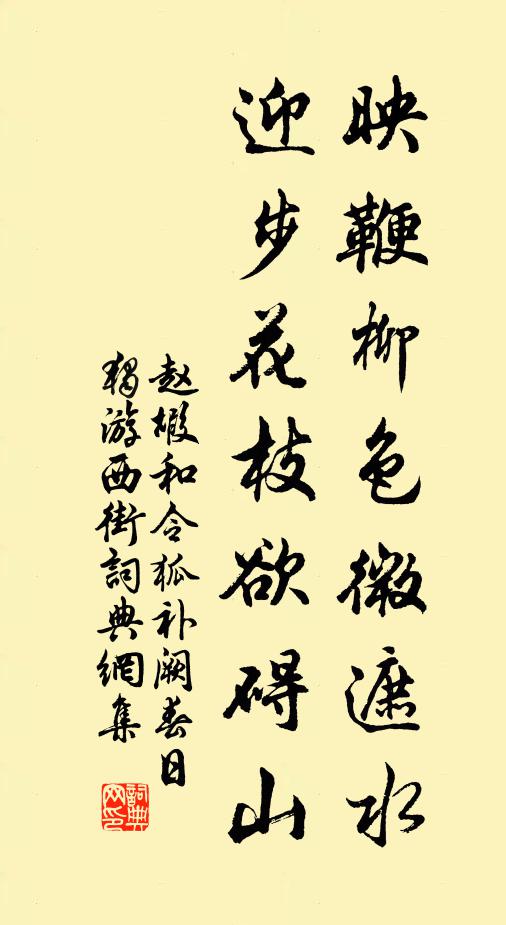 映鞭柳色微遮水
迎步花枝欲碍山
赵嘏和令狐补阙春日
独游西街詞典網集
詞典
网印